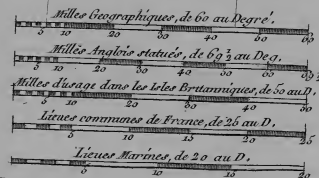 Milles Geographiques, de 60 au Degré.
5 10 20 30 40 50 60
Milles Anglois statués, de 69½ au Deg.
5 10 20 30 40 50 60 69½
Milles d'usage dans les Isles Britanniques, de 50 au D.
5 10 20 30 40 50
Lieues communes de France, de 25 au D.
5 10 15 20 25
Lieues Marines, de 20 au D.
5 10 15 20